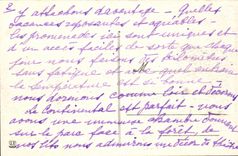 y attachons davantage - Quelles
vacances reposantes et agréables -
Les promenades ici sont uniques et
d'un accès faciles de sorte que chaque
jour nous faisons kilomètres
sans fatigue et quel entrain
la température est si bonne
nous dormons comme loirs et
Le Continental est parfait - nous
avons une immense chambre donnant
sur le parc face à la forêt de
nos lits nous admirons